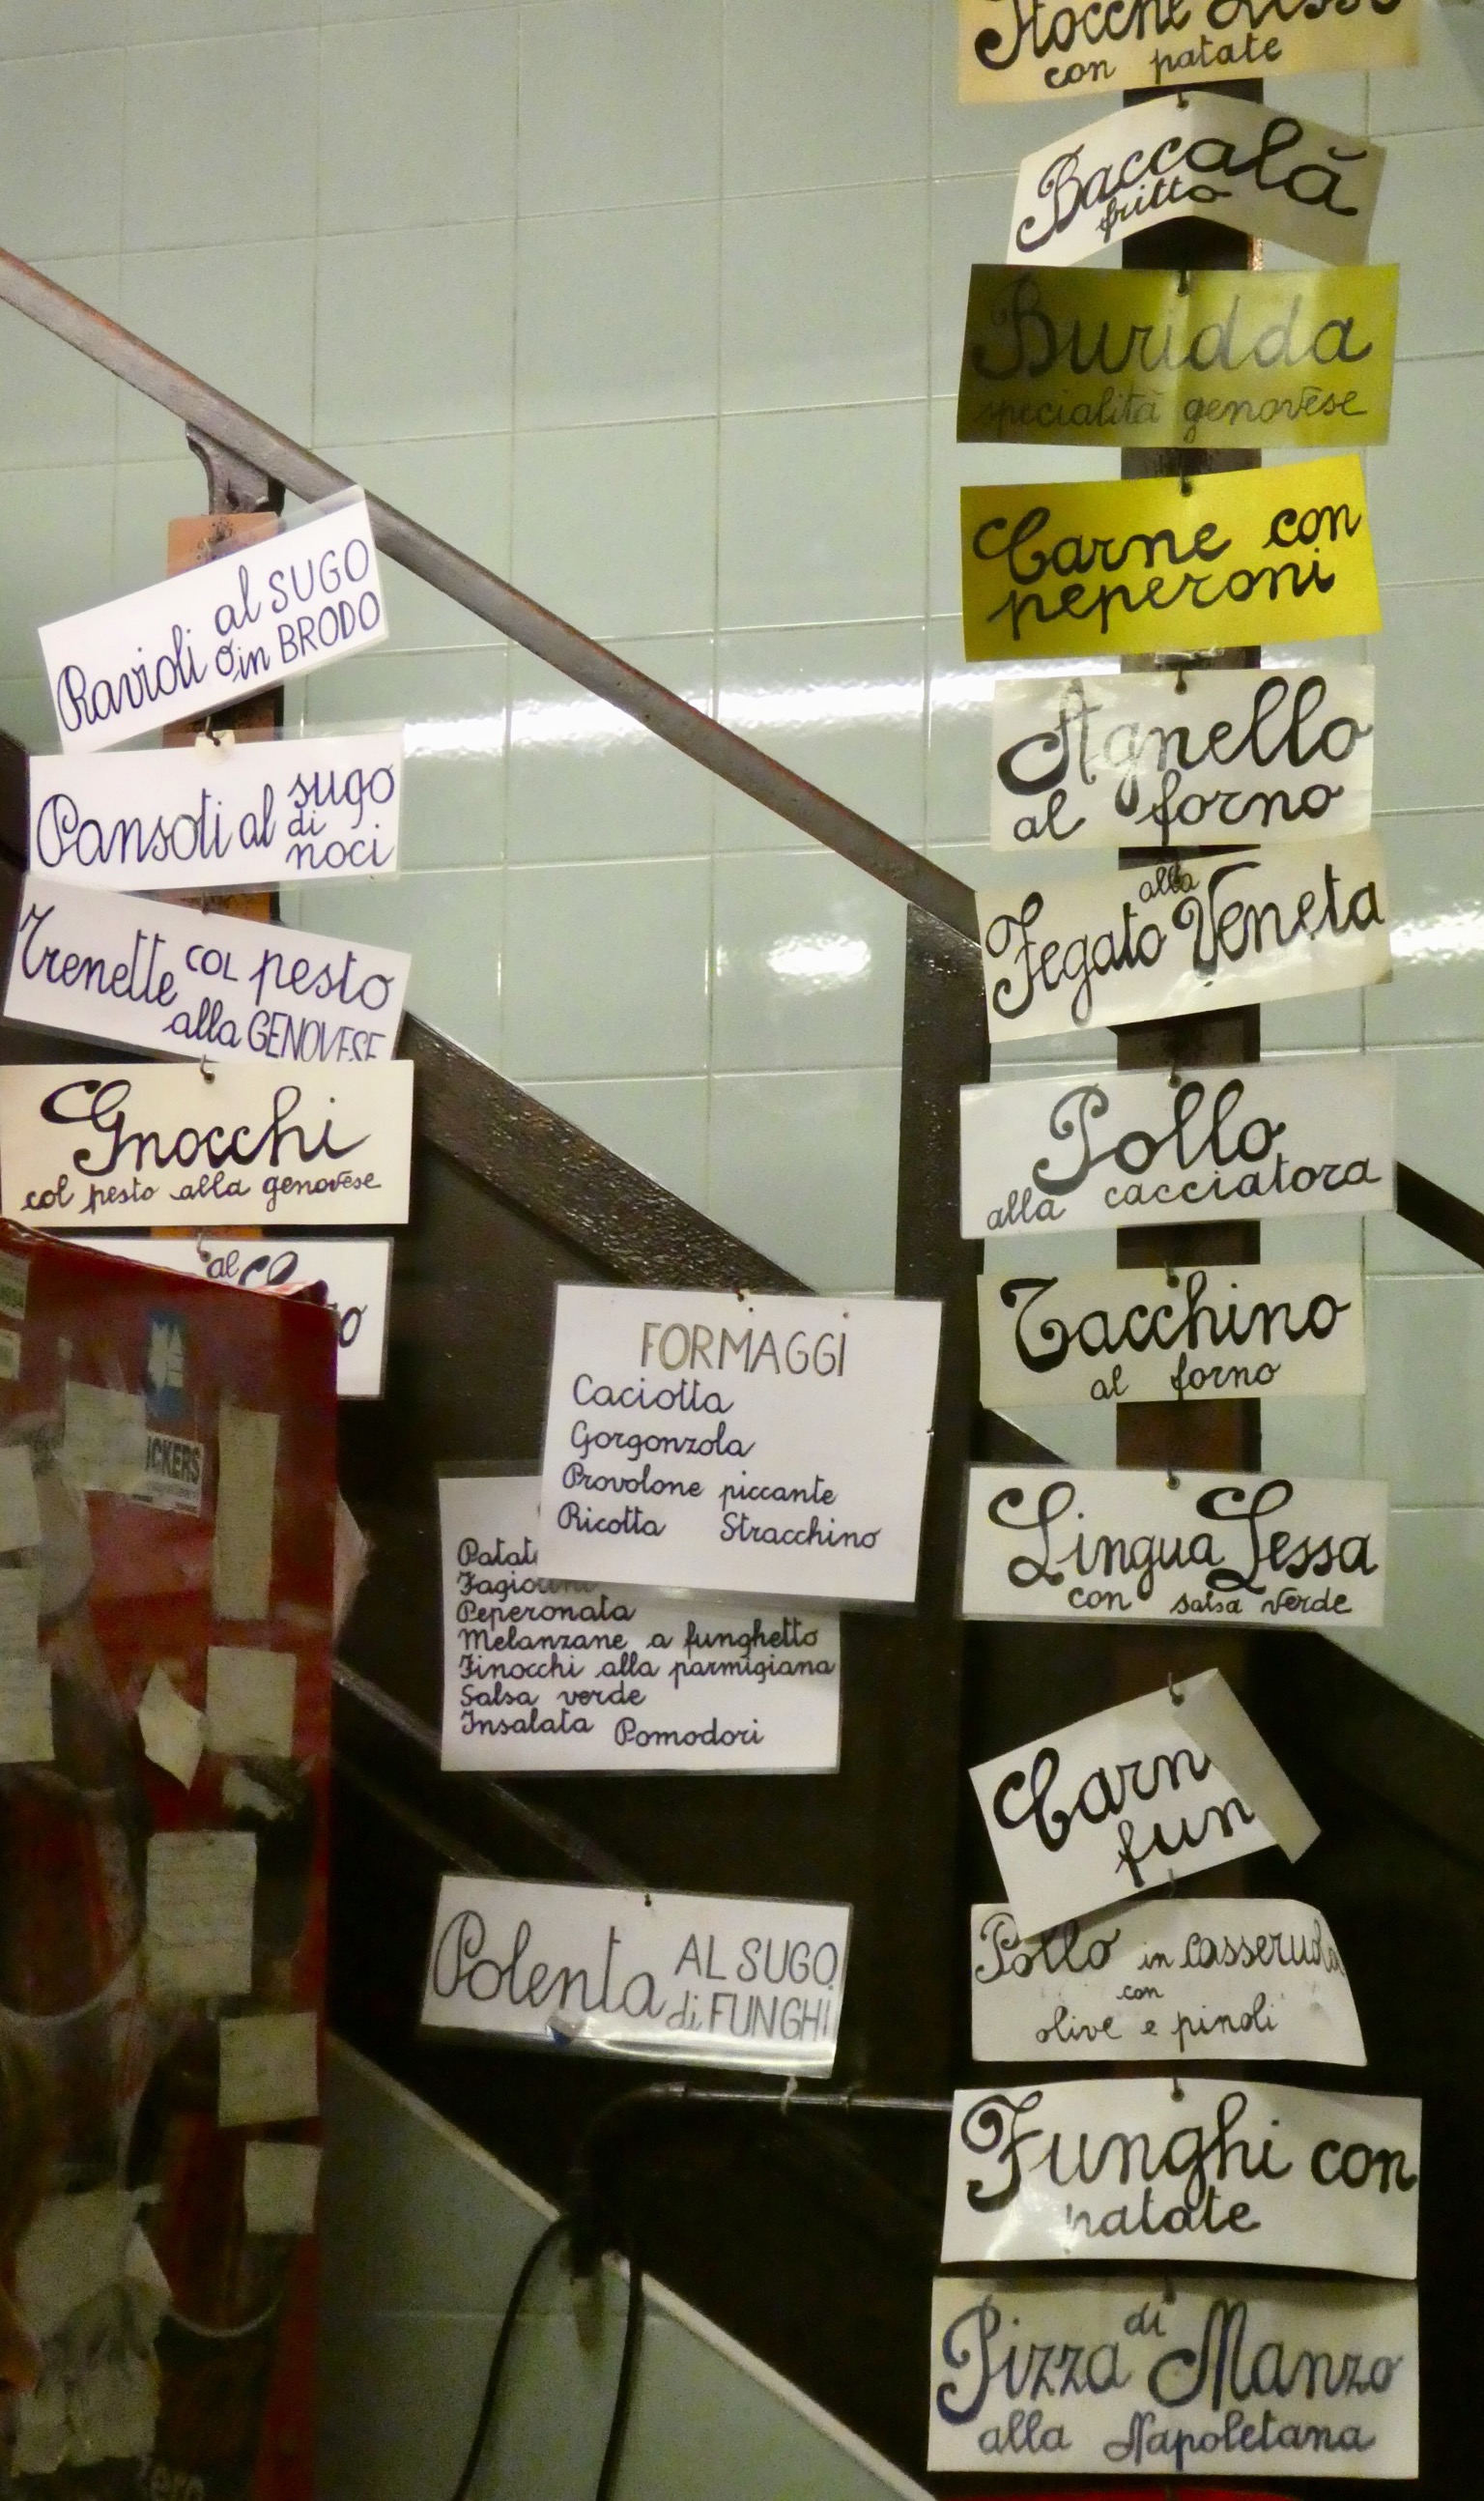 Ravioli al SUGO
O in BRODO
Pansoti al sugo
di
noci
Trenette COL pesto
alla GENOVESE
Gnocchi
col pesto alla genovese
al
ICKERS
FORMAGGI
Caciotta
Gorgonzola
Provolone piccante
Ricotta Stracchino
Patat
Fagiolini
Peperonata
Melanzane a funghetto
Finocchi alla parmigiana
Salsa verde
Insalata Pomodori
Polenta AL SUGO
di FUNGHI
con patate
Baccalà
fritto
Buridda
specialità genovese
Carne con
peperoni
Agnello
al forno
Fegato alla Veneta
Pollo
alla cacciatora
Tacchino
al forno
Lingua Lessa
con salsa verde
Carn
fun
Pollo in casseruola
con
olive e pinoli
Funghi con
patate
Pizza di Manzo
alla Napoletana